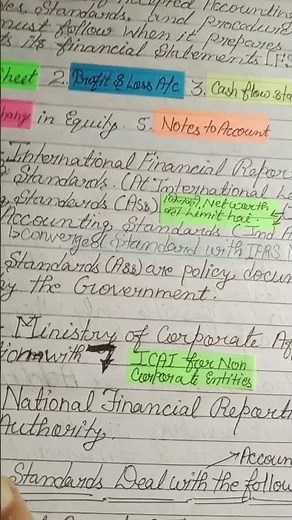 Accepted Accounting
Standards, and Procedur
must follow when it prepares
its financial Statements IFS
Sheet 2. Profit & Loss A/c 3. Cash flow Sta
in Equity. 5. Notes to Account
International Financial Repor
Standards. (At International L
Standards (ASs) Networth
Limit hai.
Accounting Standards (Ind A
Converged Standard with IFRS
Standards (ASs) are policy docu
by the Government.
Ministry of Corporate Af
with ICAI for Non
Corporate Entities
National Financial Report
Authority.
Accoun
Standards Deal with the follow